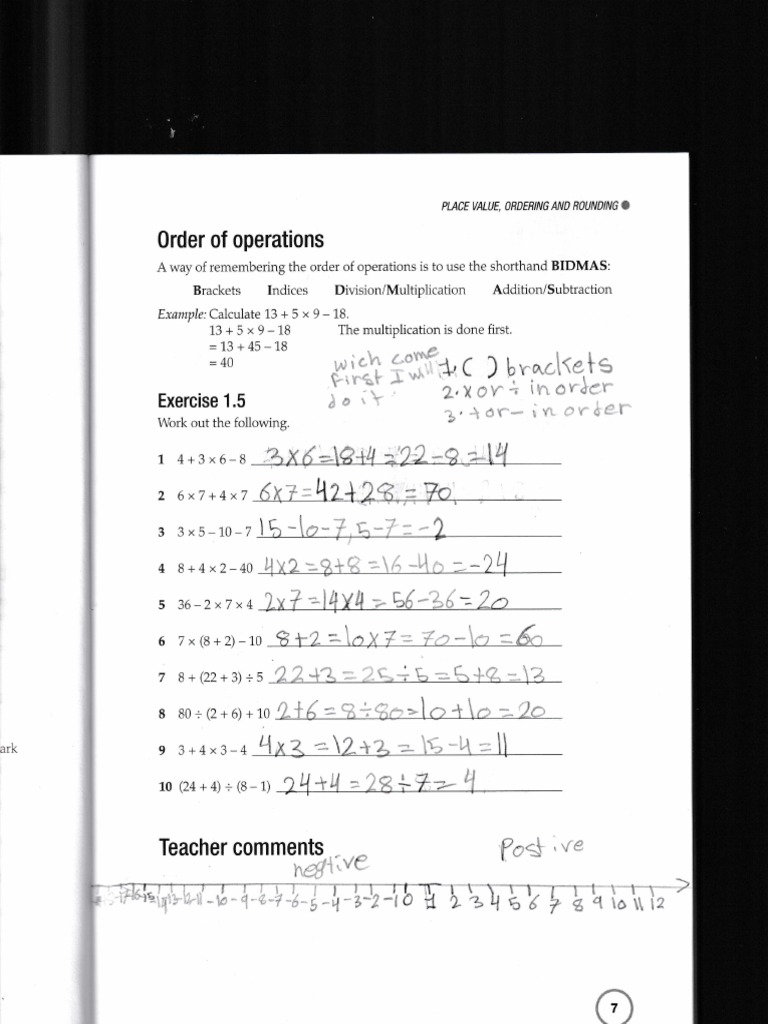 PLACE VALUE, ORDERING AND ROUNDING ●
Order of operations
A way of remembering the order of operations is to use the shorthand BIDMAS:
Brackets Indices Division/Multiplication Addition/Subtraction
Example: Calculate 13 + 5 × 9 – 18.
13 + 5 × 9 – 18 The multiplication is done first.
= 13 + 45 – 18
= 40
wich come
first I will
do it.
1. ( ) brackets
2. × or ÷ in order
3. + or – in order
Exercise 1.5
Work out the following.
1 4 + 3 × 6 – 8 3×6=18+4=22-8=14
2 6 × 7 + 4 × 7 6×7=42+28=70
3 3 × 5 – 10 – 7 15-10-7, 5-7=-2
4 8 + 4 × 2 – 40 4×2=8+8=16-40=-24
5 36 – 2 × 7 × 4 2×7=14×4=56-36=20
6 7 × (8 + 2) – 10 8+2=10×7=70-10=60
7 8 + (22 + 3) ÷ 5 22+3=25÷5=5+8=13
8 80 ÷ (2 + 6) + 10 2+6=8÷80=10+10=20
9 3 + 4 × 3 – 4 4×3=12+3=15-4=11
ark
10 (24 + 4) ÷ (8 – 1) 24+4=28÷7=4
Teacher comments
negtive Postive
-13 -12 -11 -10 -9 -8 -7 -6 -5 -4 -3 -2 -1 0 1 2 3 4 5 6 7 8 9 10 11 12
7